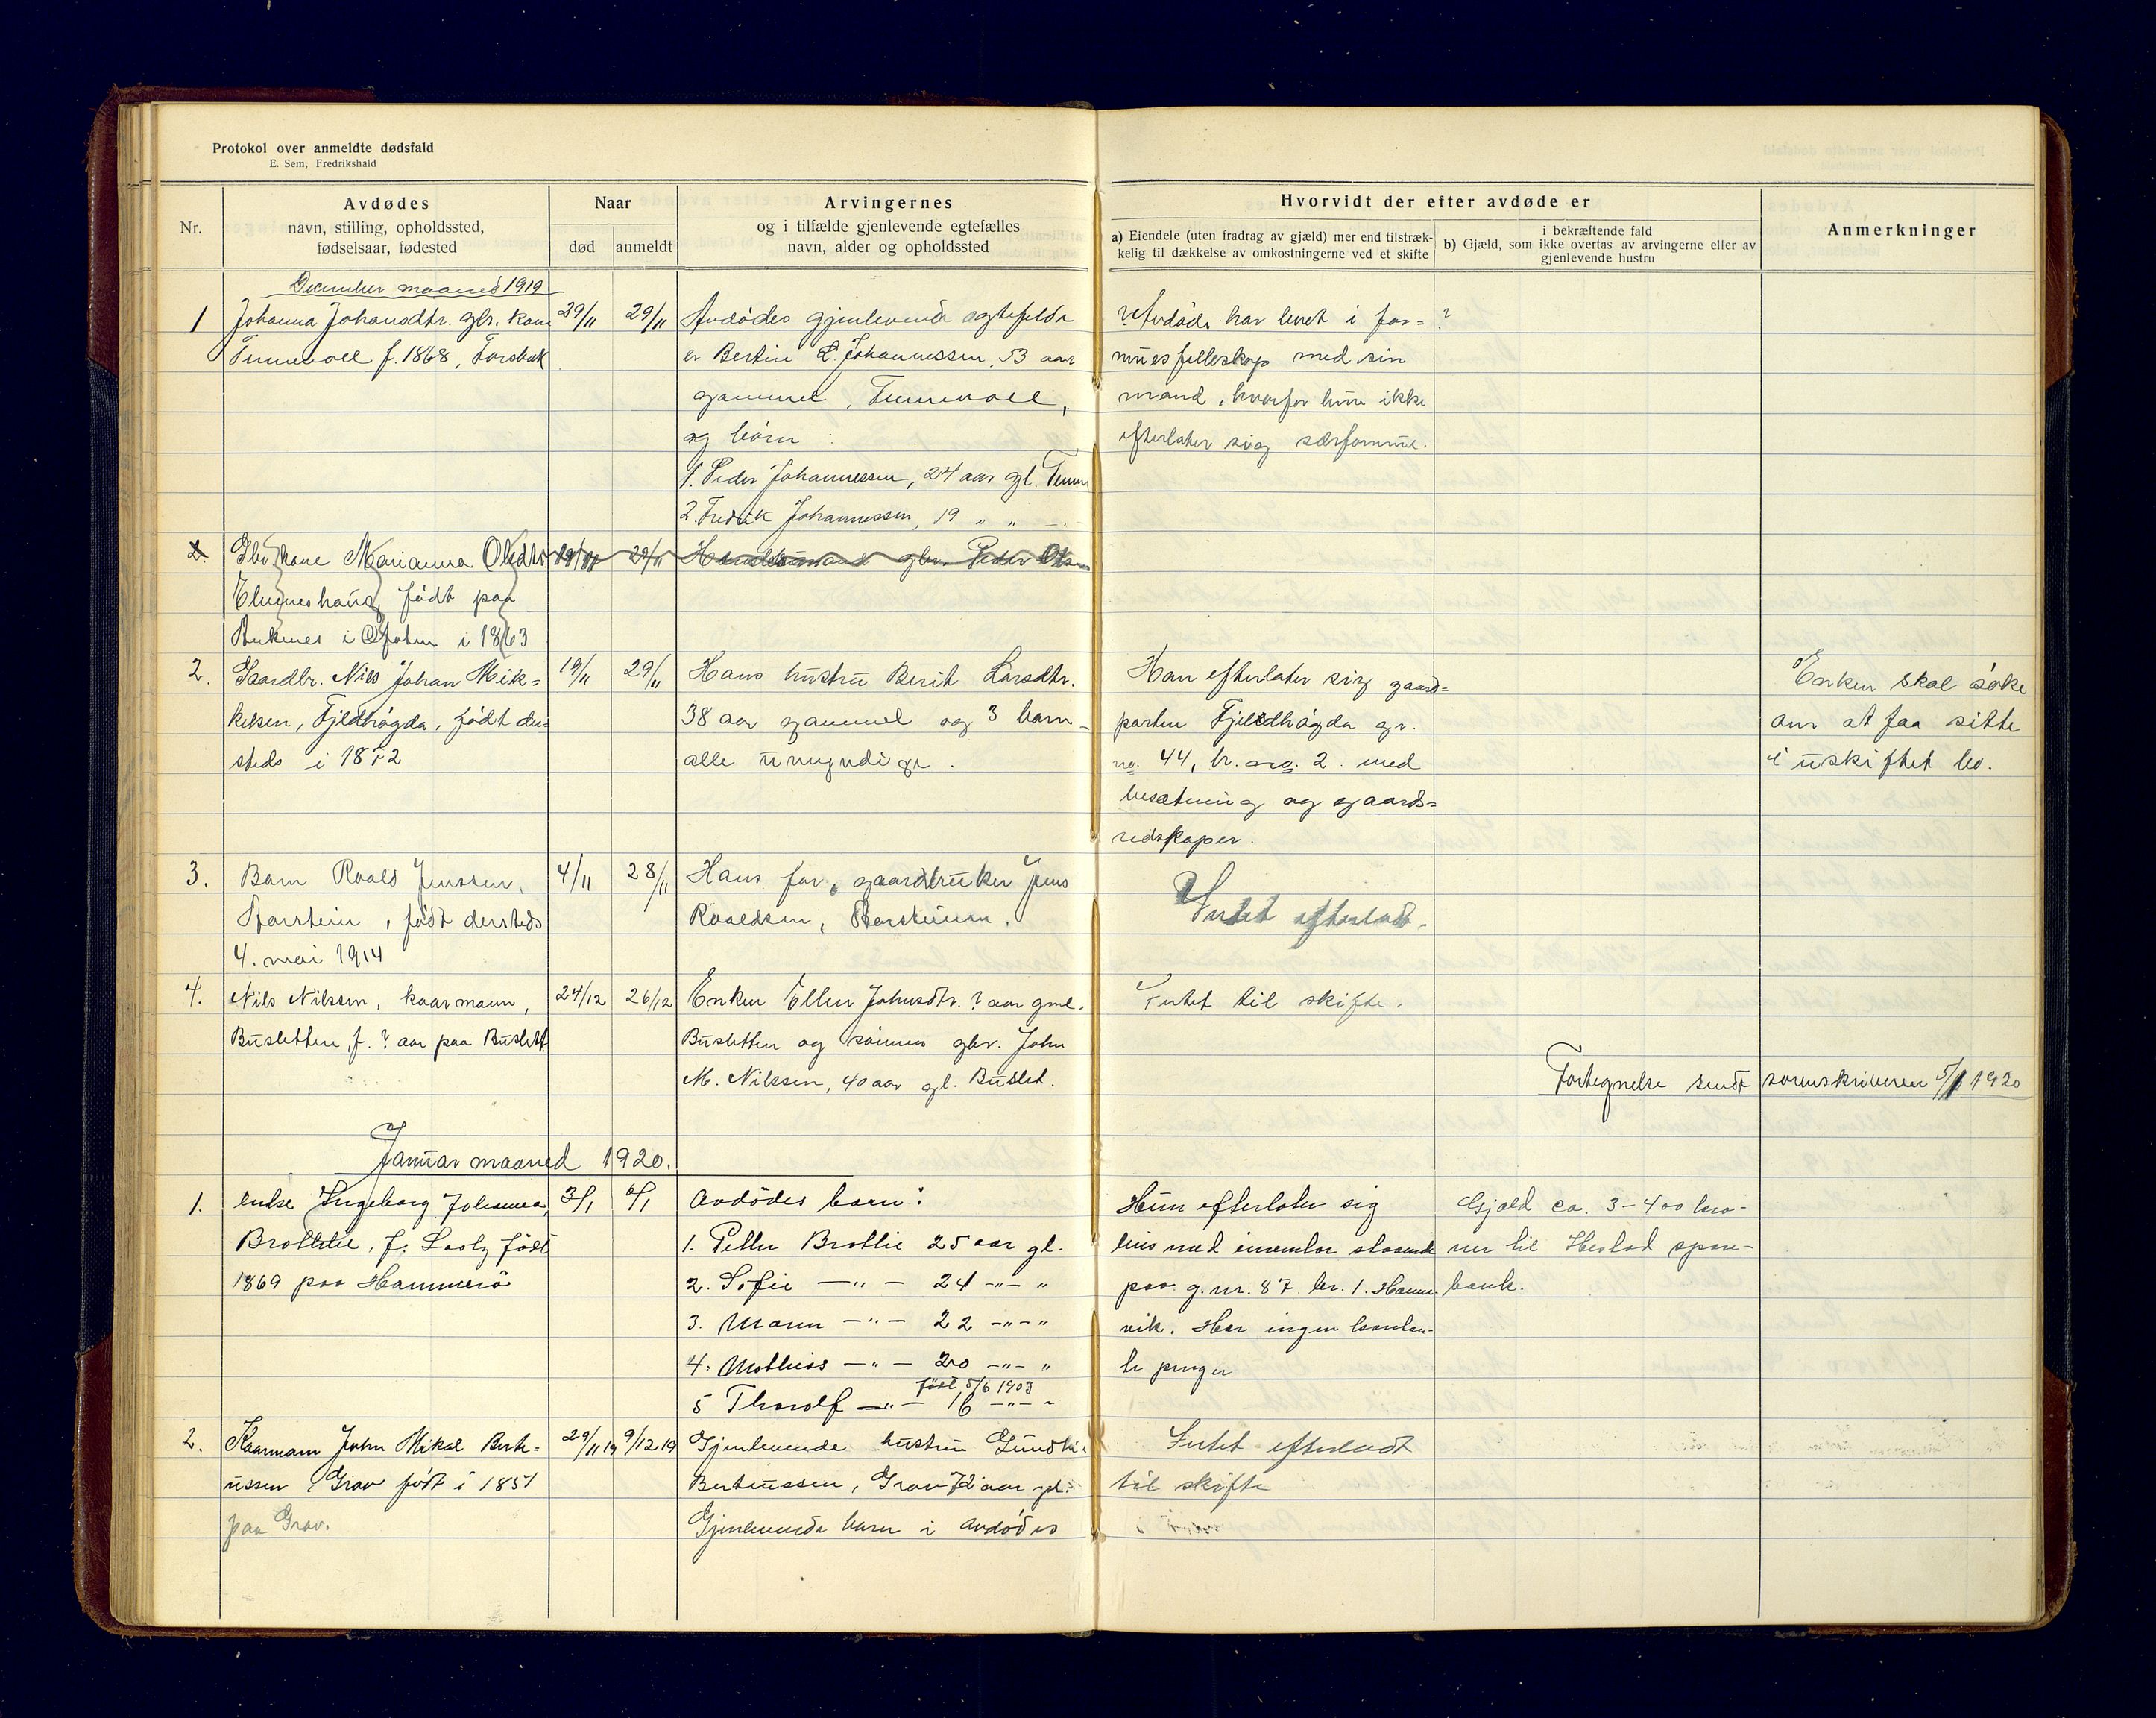 Protokol over anmeldte dødsfald
E. Sem, Fredrikshald
Nr.
Avdødes
navn, stilling, opholdssted,
fødselsaar, fødested
Naar
død
anmeldt
Arvingernes
og i tilfælde gjenlevende egtefælles
navn, alder og opholdssted
Hvorvidt der efter avdøde er
a) Eiendele (uten fradrag av gjæld) mer end tilstræk-
kelig til dækkelse av omkostningerne ved et skifte
i bekræftende fald
b) Gjæld, som ikke overtas av arvingerne eller av
gjenlevende hustru
Anmerkninger
December maaned 1919
1
Johanna Johansdtr. gbr. kone
Tennevoll f. 1868, Forsbak
29/11
29/11
Avdødes gjenlevende egtefelde
er Bertin E. Johannessen, 53 aar
gammel, Tennevoll,
og børn :
1. Peder Johannessen, 24 aar gl. Tenne
2. Fredrik Johannessen, 19 " " —.
Avdøde har levet i for=
muesfelleskap med sin
mand, hvorfor hun ikke
efterlater sig særformue.
?
2.
Gbr kone Marianna Olsdtr
født paa
i Ofoten i 1863
19/11
29/11
Hendes mand gbr. Peder Olsen
2.
Gaardbr. Nils Johan Mik=
kelsen, Fjeldhøgda, født der
steds i 1872
19/11
29/11
Hans hustru Berit Larsdtr.
38 aar gammel og 3 barn
alle umyndige.
Han efterlater sig gaard=
parten Fjeldhøgda gr.
no. 44, br. no. 2. med
besætning og gaards=
redskaper.
Enken skal søke
om at faa sitte
i uskiftet bo.
3.
Barn Roald Jenssen,
Storstein, født dersteds
4. mai 1914
4/11
28/11
Hans far, gaardbruker Jens
Roaldsen, Storsteinen.
Intet efterlatt.
4.
Nils Nilssen, kaarmann,
Busletten, f. ? aar paa Buslett
24/12
26/12
Enken Ellen Johnsdtr. ? aar gml.
Busletten og sønnen gbr. John
M. Nilssen, 40 aar gl. Buslet.
Intet til skifte.
Fortegnelse sendt sorenskriveren 5/1 1920
Januar maaned 1920.
1.
enke Ingeborg Johannea
Brotlie, f. født
1869 paa Hammerø
3/1
6/1
Avdødes barn:
1. Petter Brotlie 25 aar gl.
2. Sofie —"— 24 —"— "
3. Marin —"— 22 —"— "
4. Mathias —"— 20 —"— "
født 5/6 1903
5 Thorolf —"— 16 —"— "
Hun efterlater sig
hus med inventar staaende
paa g.nr. 87. br. 1. Hamn-
vik. Har ingen kontan-
te penger
Gjæld ca. 3-400 kro-
ner til spare-
bank.
2.
Kaarmann John Mikal Bert=
ussen, Grav født i 1851
paa Grav.
29/11 19
9/12 19
Gjenlevende hustru
Berteussen, Grav 72 aar gl.
Gjenlevende barn i avdødes
Intet efterladt
til skifte